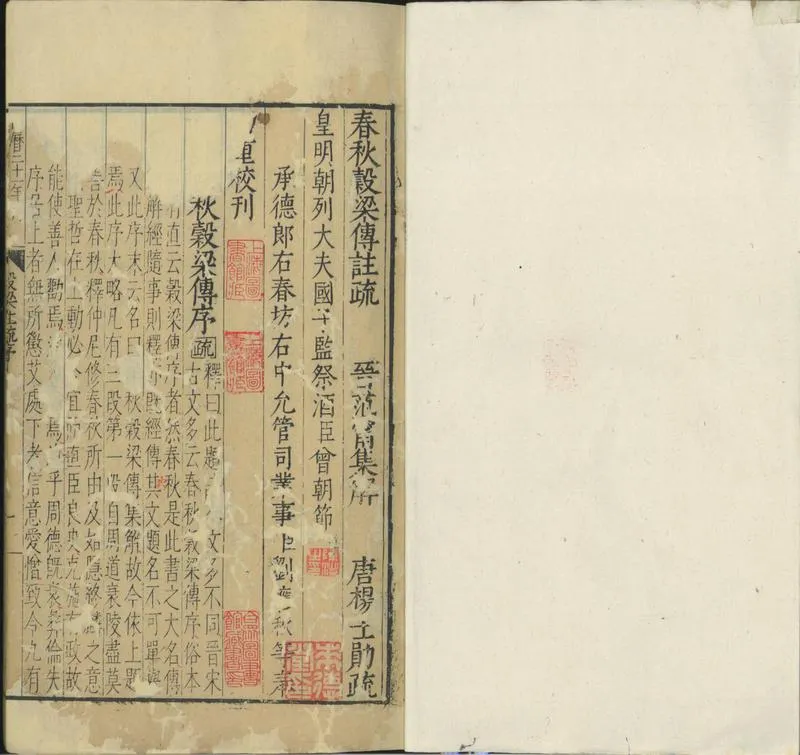 春秋穀梁傳註疏 晉范甯集解 唐楊士勛疏
皇明朝列大夫國子監祭酒臣曾朝節
承德郎右春坊右中允管司業事臣劉應秋等奉
重校刊
秋穀梁傳序 疏 釋曰此題 文多不同晉宋
古文多云春秋穀梁傳序俗本
直云穀梁傳序者然春秋是此書之大名傳
解經隨事則釋 既經傳共文題名不可單
又此序末云名曰 秋穀梁傳集解故今依上題
焉此序大略凡有三段第一段自周道衰陵盡莫
善於春秋釋仲尼修春秋所由及始隱終 之意
聖哲在上動必 宜 直臣良史克施 政故
能使善人勸焉 焉 乎周德既衰彝倫失
序居上者無所懲艾處下者信意愛憎致令九有
曆二十一年
穀梁註疏序